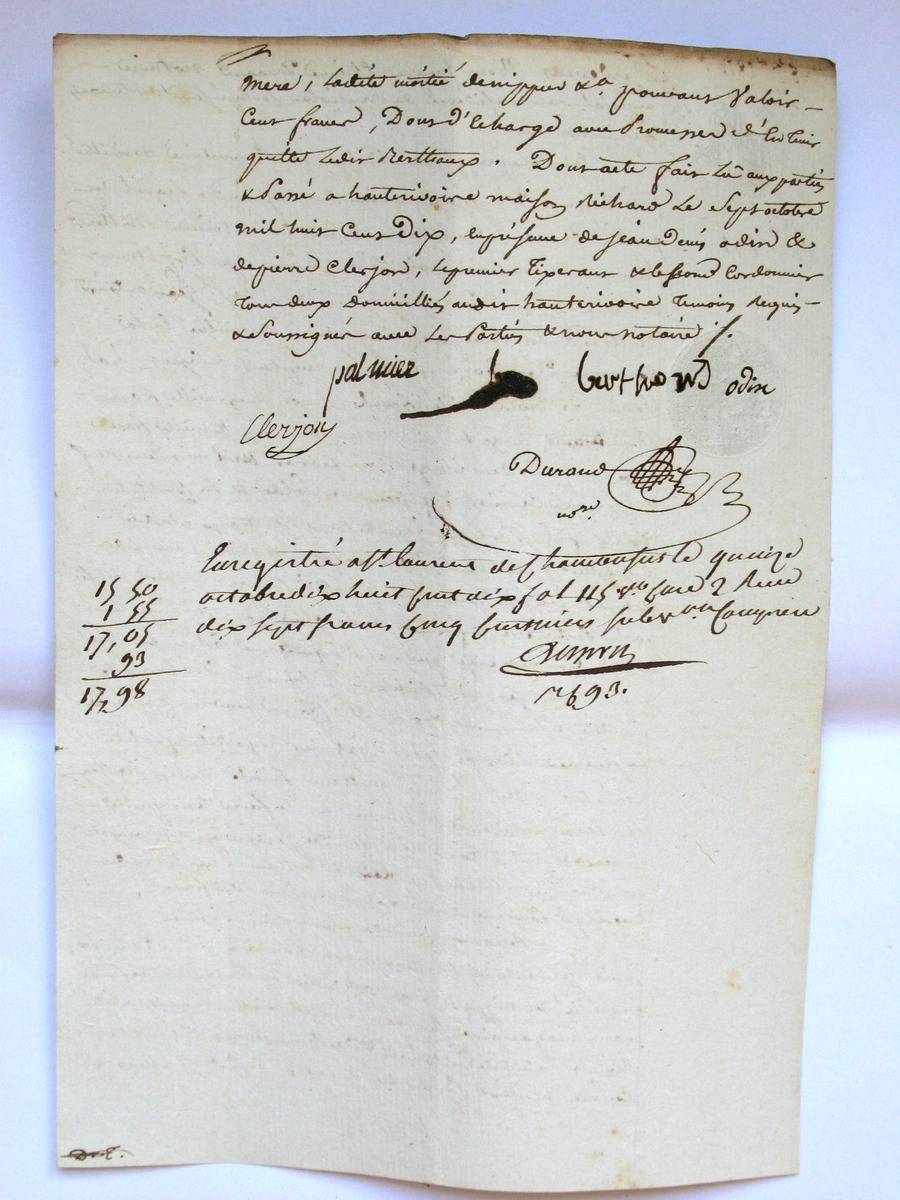 mere, ladite moitié de nippes &a. pouvant valoir
Cent francs, Dont d'Echarge avec Promesse d'en tenir
quitte ledit Berthaux. Dont acte fait Lu aux parties
& Passé a hauterivoire maison Richard Le Sept octobre
mil huit Cent Dix, en présence de jean Denis odin &
de pierre Clerjon, le premier tixerant & le second Cordonnier
tous deux domiciliés audit hauterivoire temoins Requis
& Soussignés avec Les Parties & nous notaire /.
palmier
odin
Clerjon
Durand
nore.
Enregistré a St. laurent de Chamousset le quinze
octobre dix huit cent dix fol 115 vo Case 2 Reçu
dix sept francs cinq centimes subvon Comprise
15 50
1 55
17,05
93
17,98